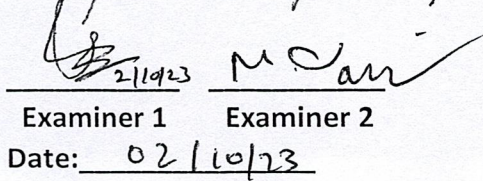 2/10/23
Examiner 1 Examiner 2
Date: 02/10/23